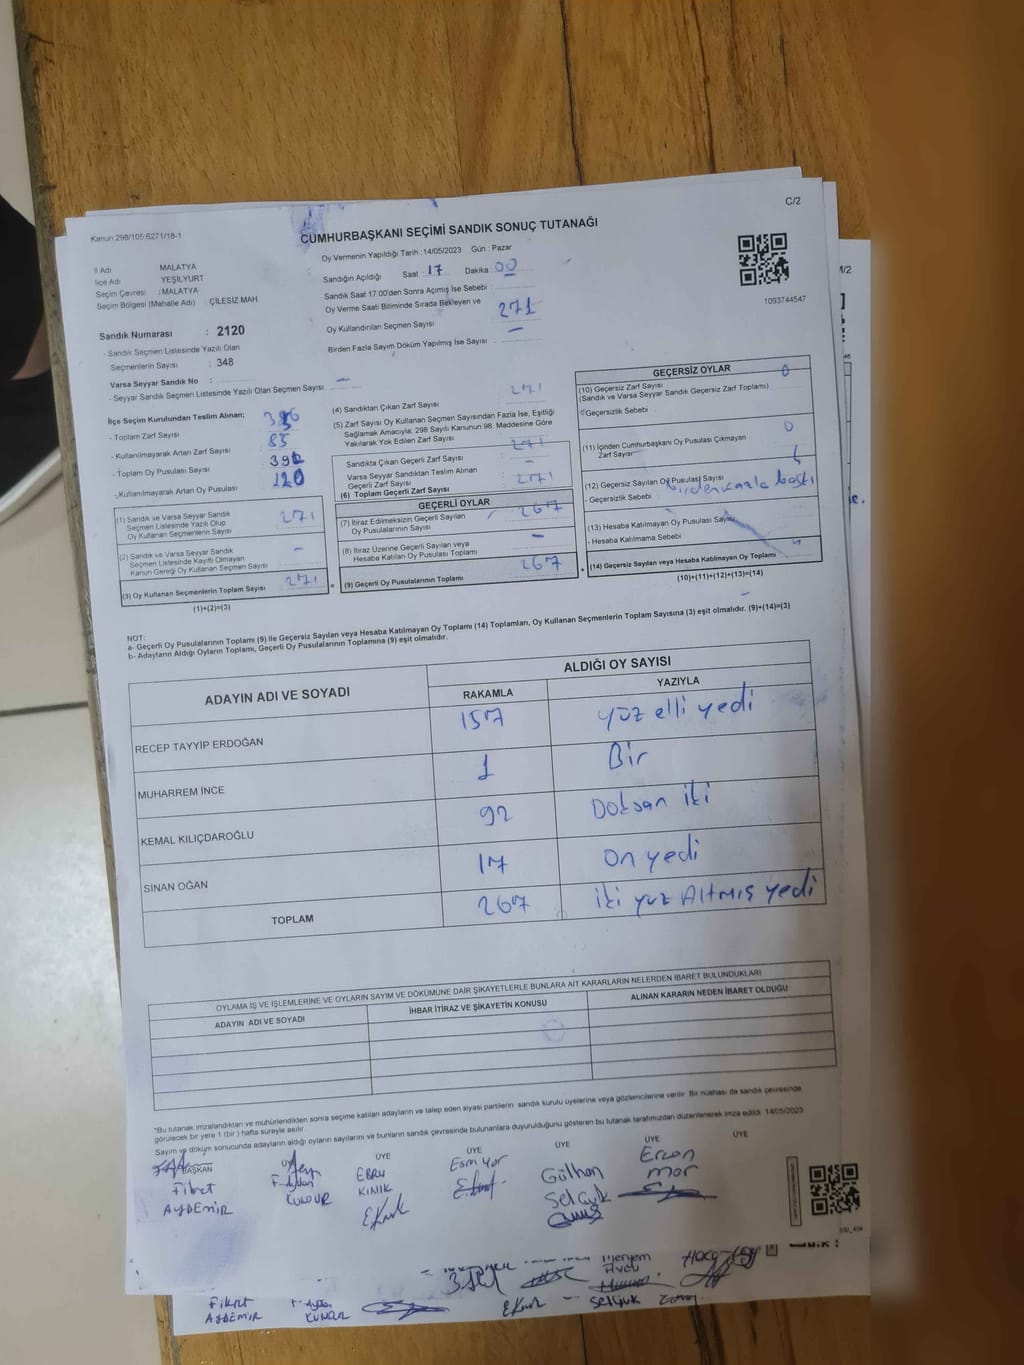 C/2
Kanun:298/105;6271/18-1
CUMHURBAŞKANI SEÇİMİ SANDIK SONUÇ TUTANAĞI
Oy Vermenin Yapıldığı Tarih : 14/05/2023 Gün : Pazar
İl Adı MALATYA
İlçe Adı YEŞİLYURT
Seçim Çevresi : MALATYA
Seçim Bölgesi (Mahalle Adı) : ÇİLESİZ MAH.
Sandığın Açıldığı Saat : 17 Dakika : 00
Sandık Saat 17:00'den Sonra Açılmış İse Sebebi :
Oy Verme Saati Bitiminde Sırada Bekleyen ve
Oy Kullandırılan Seçmen Sayısı : 271
Birden Fazla Sayım Döküm Yapılmış İse Sayısı : –
1093744547
Sandık Numarası : 2120
- Sandık Seçmen Listesinde Yazılı Olan
Seçmenlerin Sayısı : 348
Varsa Seyyar Sandık No :
- Seyyar Sandık Seçmen Listesinde Yazılı Olan Seçmen Sayısı : –
İlçe Seçim Kurulundan Teslim Alınan;
- Toplam Zarf Sayısı
- Kullanılmayarak Artan Zarf Sayısı 85
- Toplam Oy Pusulası Sayısı
- Kullanılmayarak Artan Oy Pusulası 120
(1) Sandık ve Varsa Seyyar Sandık
Seçmen Listesinde Yazılı Olup
Oy Kullanan Seçmenlerin Sayısı 271
(2) Sandık ve Varsa Seyyar Sandık
Seçmen Listesinde Kayıtlı Olmayan
Kanun Gereği Oy Kullanan Seçmen Sayısı –
(3) Oy Kullanan Seçmenlerin Toplam Sayısı 271
(1)+(2)=(3)
(4) Sandıktan Çıkan Zarf Sayısı 271
(5) Zarf Sayısı Oy Kullanan Seçmen Sayısından Fazla İse, Eşitliği
Sağlamak Amacıyla; 298 Sayılı Kanunun 98. Maddesine Göre
Yakılarak Yok Edilen Zarf Sayısı
Sandıkta Çıkan Geçerli Zarf Sayısı 271
Varsa Seyyar Sandıktan Teslim Alınan
Geçerli Zarf Sayısı –
(6) Toplam Geçerli Zarf Sayısı 271
GEÇERLİ OYLAR
(7) İtiraz Edilmeksizin Geçerli Sayılan
Oy Pusulalarının Sayısı 267
(8) İtiraz Üzerine Geçerli Sayılan veya
Hesaba Katılan Oy Pusulası Toplamı –
(9) Geçerli Oy Pusulalarının Toplamı 267
GEÇERSİZ OYLAR
(10) Geçersiz Zarf Sayısı 0
(Sandık ve Varsa Seyyar Sandık Geçersiz Zarf Toplamı)
- Geçersizlik Sebebi
(11) İçinden Cumhurbaşkanı Oy Pusulası Çıkmayan
Zarf Sayısı 0
(12) Geçersiz Sayılan Oy Pusulası Sayısı
- Geçersizlik Sebebi : Birden fazla baskı
(13) Hesaba Katılmayan Oy Pusulası Sayısı
- Hesaba Katılmama Sebebi
(14) Geçersiz Sayılan veya Hesaba Katılmayan Oy Toplamı
(10)+(11)+(12)+(13)=(14)
NOT:
a- Geçerli Oy Pusulalarının Toplamı (9) ile Geçersiz Sayılan veya Hesaba Katılmayan Oy Toplamı (14) Toplamları, Oy Kullanan Seçmenlerin Toplam Sayısına (3) eşit olmalıdır. (9)+(14)=(3)
b- Adayların Aldığı Oyların Toplamı, Geçerli Oy Pusulalarının Toplamına (9) eşit olmalıdır.
ADAYIN ADI VE SOYADI
ALDIĞI OY SAYISI
RAKAMLA YAZIYLA
RECEP TAYYİP ERDOĞAN 157 yüz elli yedi
MUHARREM İNCE 1 Bir
KEMAL KILIÇDAROĞLU 92 Doksan iki
SİNAN OĞAN 17 on yedi
TOPLAM 267 iki yüz Altmış yedi
OYLAMA İŞ VE İŞLEMLERİNE VE OYLARIN SAYIM VE DÖKÜMÜNE DAİR ŞİKAYETLERLE BUNLARA AİT KARARLARIN NELERDEN İBARET BULUNDUKLARI
ADAYIN ADI VE SOYADI İHBAR İTİRAZ VE ŞİKAYETİN KONUSU ALINAN KARARIN NEDEN İBARET OLDUĞU
*Bu tutanak imzalandıktan ve mühürlendikten sonra seçime katılan adayların ve talep eden siyasi partilerin sandık kurulu üyelerine veya gözlemcilerine verilir. Bir nüshası da sandık çevresinde
görülecek bir yere 1 (bir) hafta süreyle asılır.
Sayım ve döküm sonucunda adayların aldığı oyların sayılarını ve bunların sandık çevresinde bulunanlara duyurulduğunu gösteren bu tutanak tarafımızdan düzenlenerek imza edildi. 14/05/2023
BAŞKAN ÜYE ÜYE ÜYE ÜYE ÜYE ÜYE
Fikret AYDEMİR
EBRU KINIK
Gülhan Selçuk
Ercan mor
Meryem Avcı
Fikret AYDEMİR
Selçuk